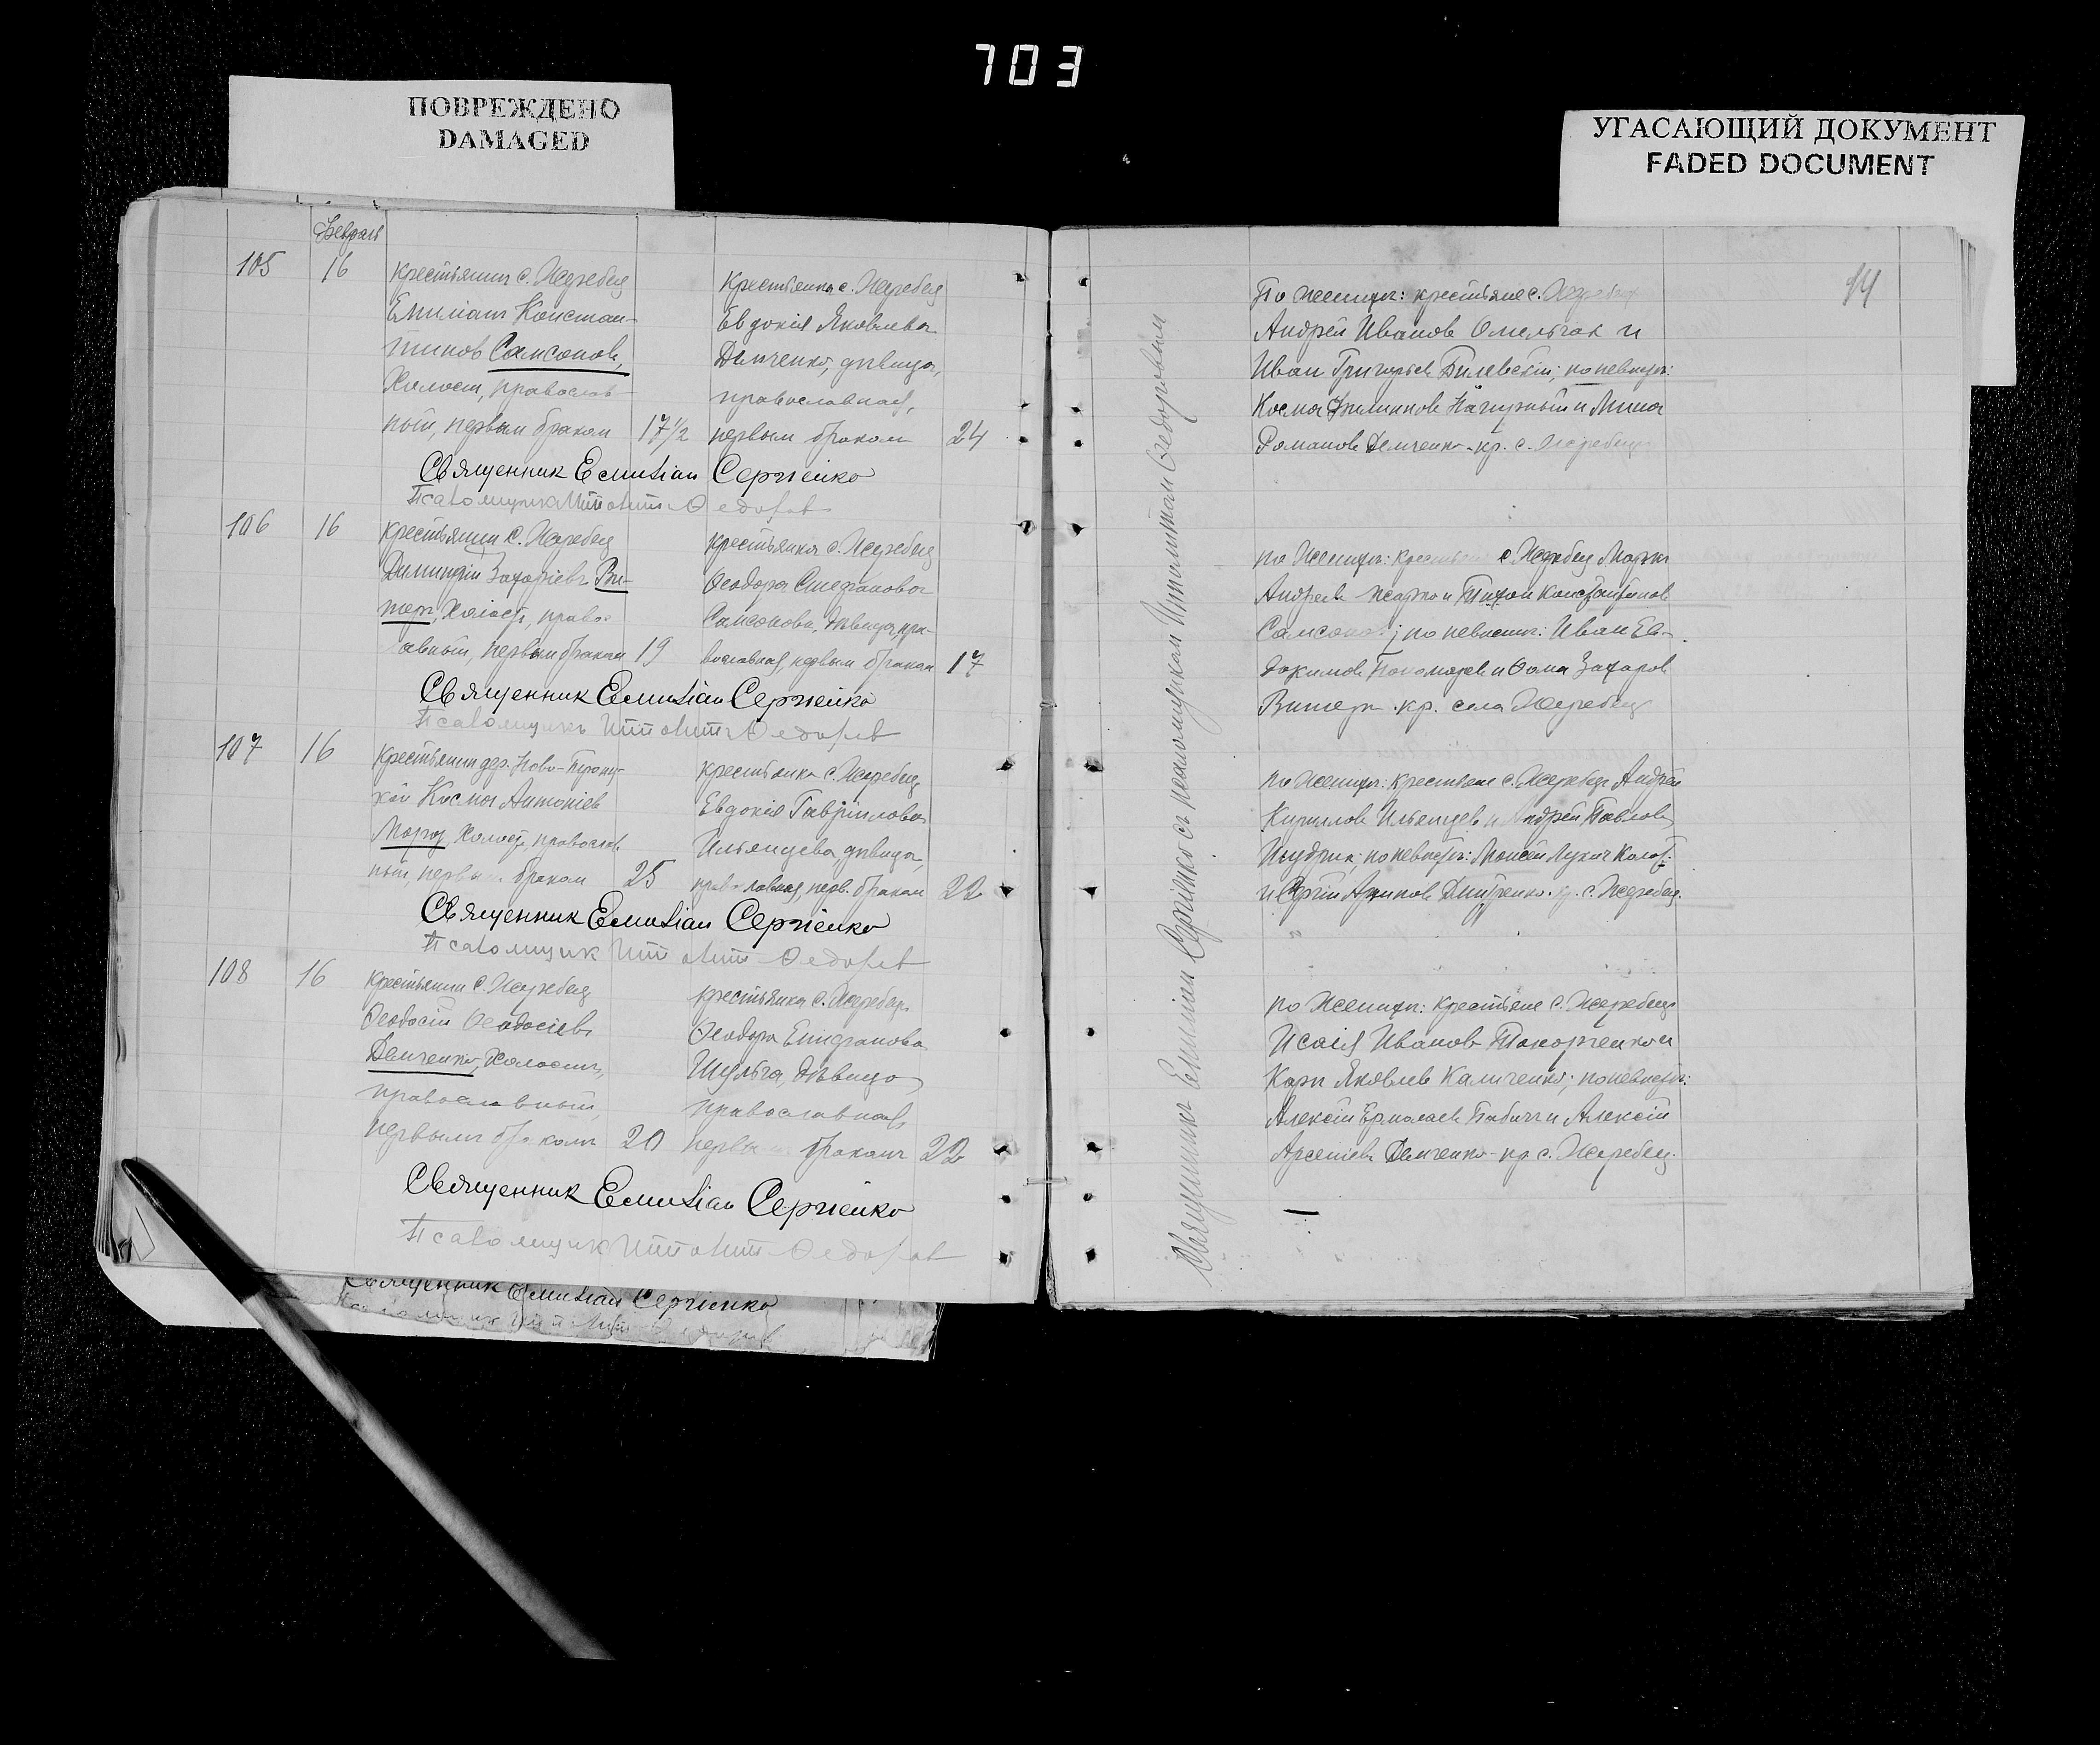 703
ПОВРЕЖДЕНО
DAMAGED
УГАСАЮЩИЙ ДОКУМЕНТ
FADED DOCUMENT
Февраль
105 16
крестьянин с. Жеребец
Емилиан Констан-
тинов Самсонов,
холост, православ-
ный, первым браком 17½
Крестьянка с. Жеребец
Евдокія Яковлева
Демченко, девица,
православная,
первым браком 24
Священник Емилiан Сергіенко
Псаломщик Ипполит Федоров
106 16
крестьянин с. Жеребец
Димитрій Захаріевъ Ви-
тер, холост, право-
славный, первым браком 19
крестьянка с. Жеребец
Феодора Стефанова
Самсонова, девица, пра-
вославная, первым браком 17
Священник Емилiан Сергіенко
Псаломщикъ Ипполитъ Федоров
107 16
Крестьянин дер. Ново-
Косма Антоніев
Мороз, холост, православ
ный, первым браком 25
крестьянка с. Жеребец
Евдокія Гавріилова
Ильяшева, девица,
православная, перв. браком 22
Священник Емилiан Сергіенко
Псаломщик Ипполит Федоров
108 16
крестьянин с. Жеребец
Феодосій Феодосіевъ
Демченко, холостъ,
православный,
первымъ бракомъ 20
крестьянка с. Жеребец
Феодора Епифанова
Шульга, девица,
православная,
первымъ бракомъ 22
Священник Емилiан Сергіенко
Псаломщик Ипполит Федоров
Священник Емилiан Сергіенко
По жениху: крестьяне с. Жеребец
Андрей Иванов Омельчак и
Иван Григорьев Билевскій; по невесте:
Косма Филиппов и Мина
Романов Демченко - кр. с. Жеребец
по жениху: крестьяне с. Жеребец Марк
Андреев и Тихон Константинов
Самсонов; по невесте: Иван Ев-
докимов Пономарев и Фома Захаров
Витер кр. села Жеребец
по жениху: крестьяне с. Жеребец Андрей
Кириллов Ильяшев и Андрей Павлов
по невесте: Моисей Лукич
и Сергій Дмитренко кр. с. Жеребец.
по жениху: крестьяне с. Жеребец
Исаія Иванов и
Карп Яковлев Каличенко; по невесте:
Алексій Ермолаев Бабич и Алексій
Арсеніев Демченко - кр. с. Жеребец.
Священникъ Емилиан Сергіенко съ псаломщикомъ Ипполитом Феодоровым